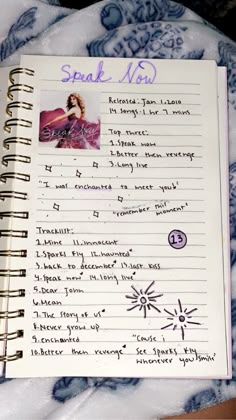 Speak Now
Released: Jan 1, 2010
14 songs: 1 hr 7 mins
Speak Now
Top three:
1. Speak now
2. Better then revenge
3. Long live
"I was enchanted to meet you"
"remember this moment"
13
Tracklist:
1. Mine 11. innocent
2. Sparks fly 12. haunted
3. back to december 13. last kiss
4. Speak now 14. long live
5. Dear John
6. Mean
7. The Story of us
8. Never grow up
9. enchanted
10. Better then revenge
"Cause i
See Sparks fly
whenever you smile"